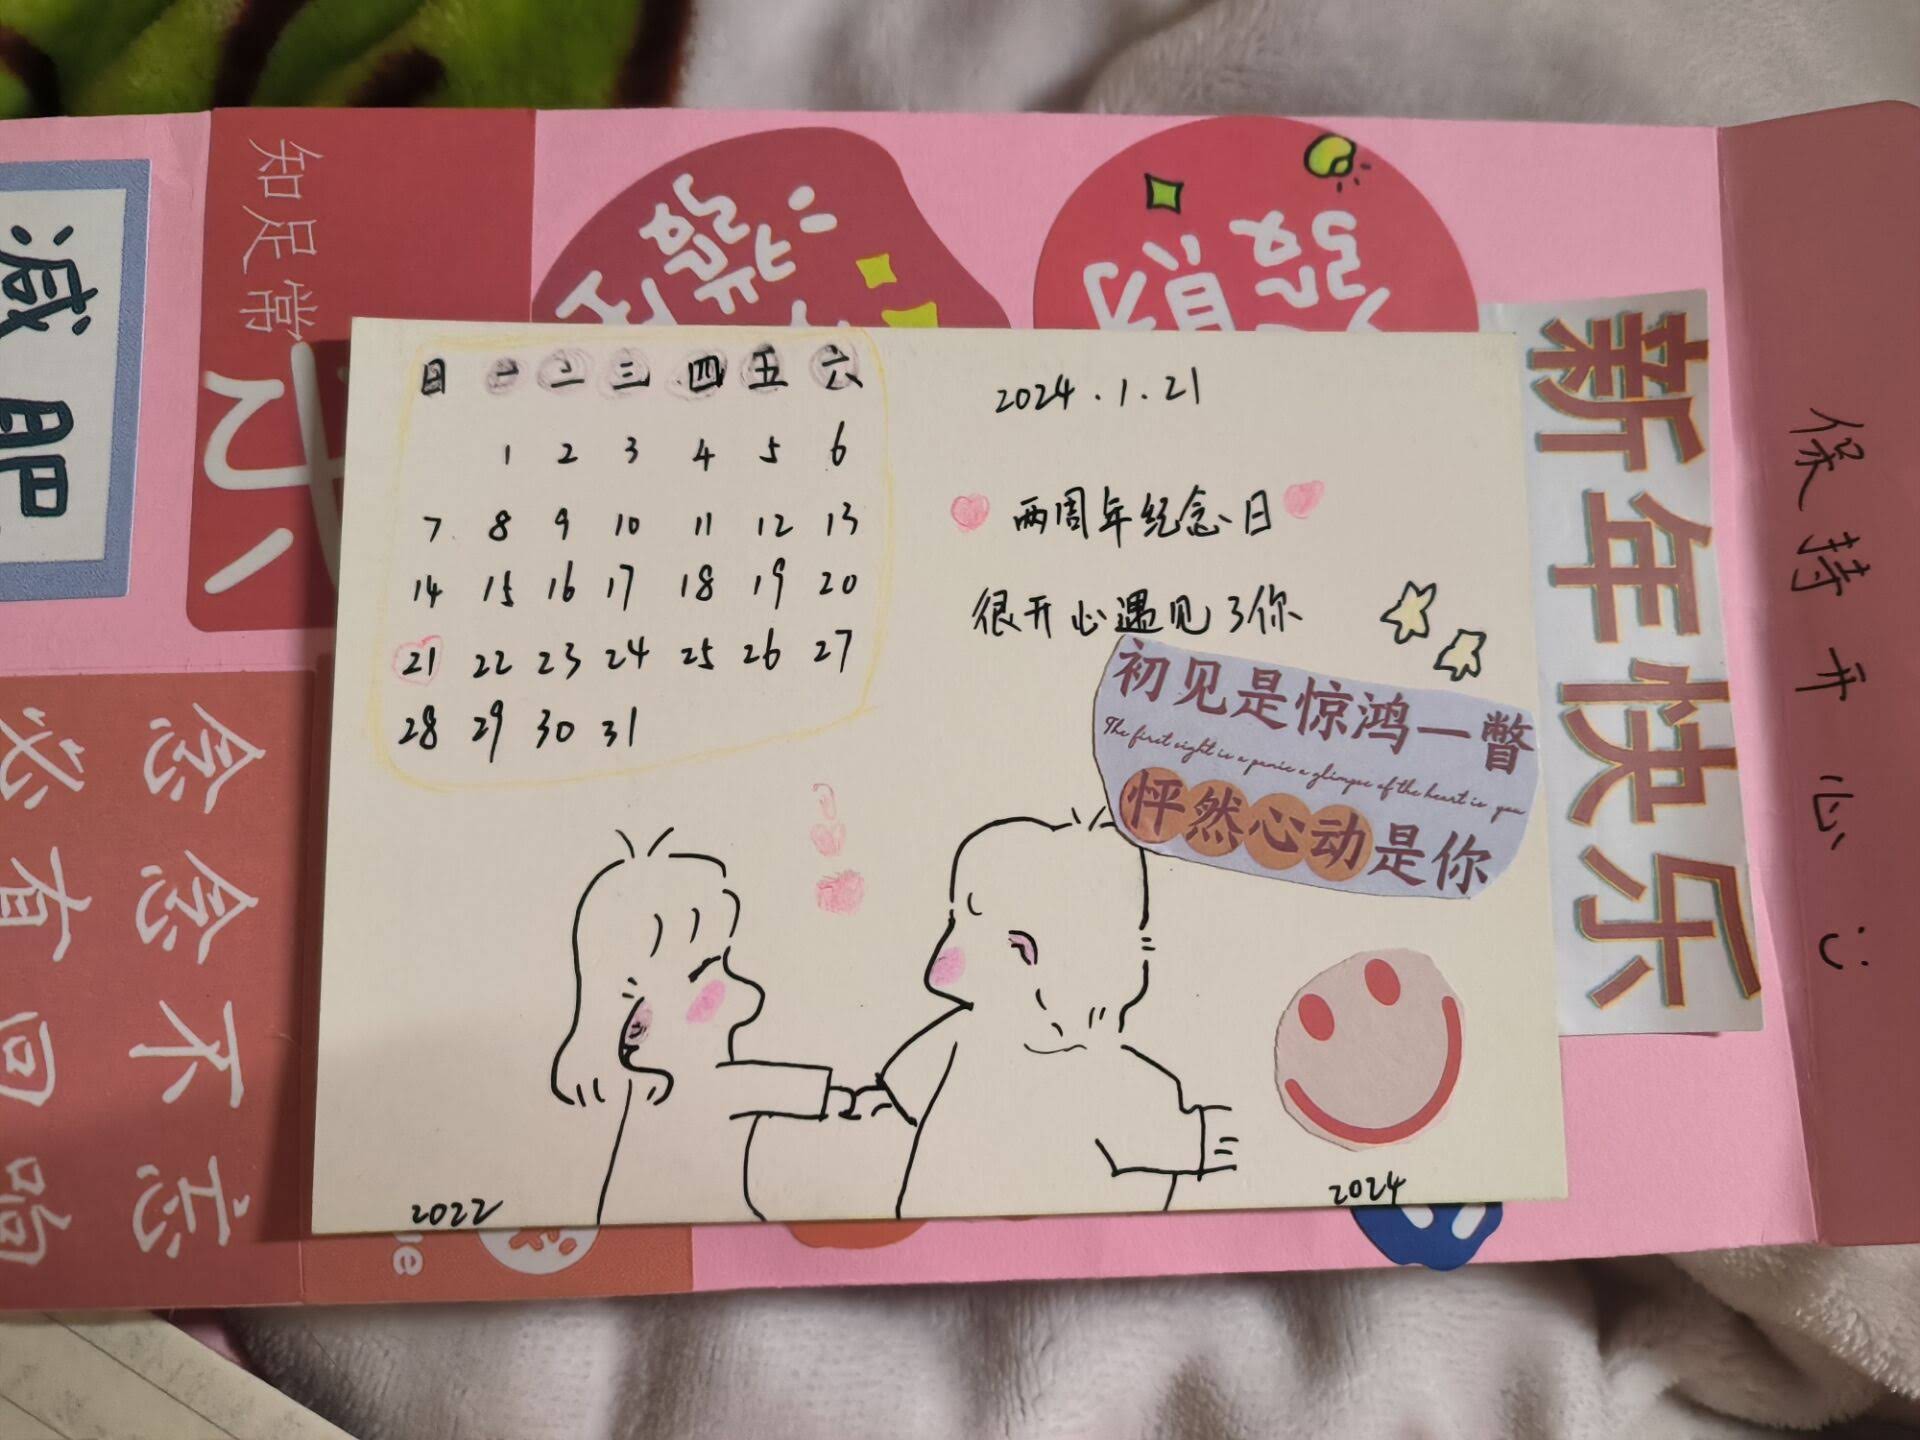 减肥
知足常
乐
念念不忘
必有回响
发财
日 一 二 三 四 五 六
1 2 3 4 5 6
7 8 9 10 11 12 13
14 15 16 17 18 19 20
21 22 23 24 25 26 27
28 29 30 31
2024.1.21
两周年纪念日
很开心遇见了你
初见是惊鸿一瞥
The first sight is a panic a glimpse of the heart is you
怦然心动是你
2022
2024
新年快乐
保持开心